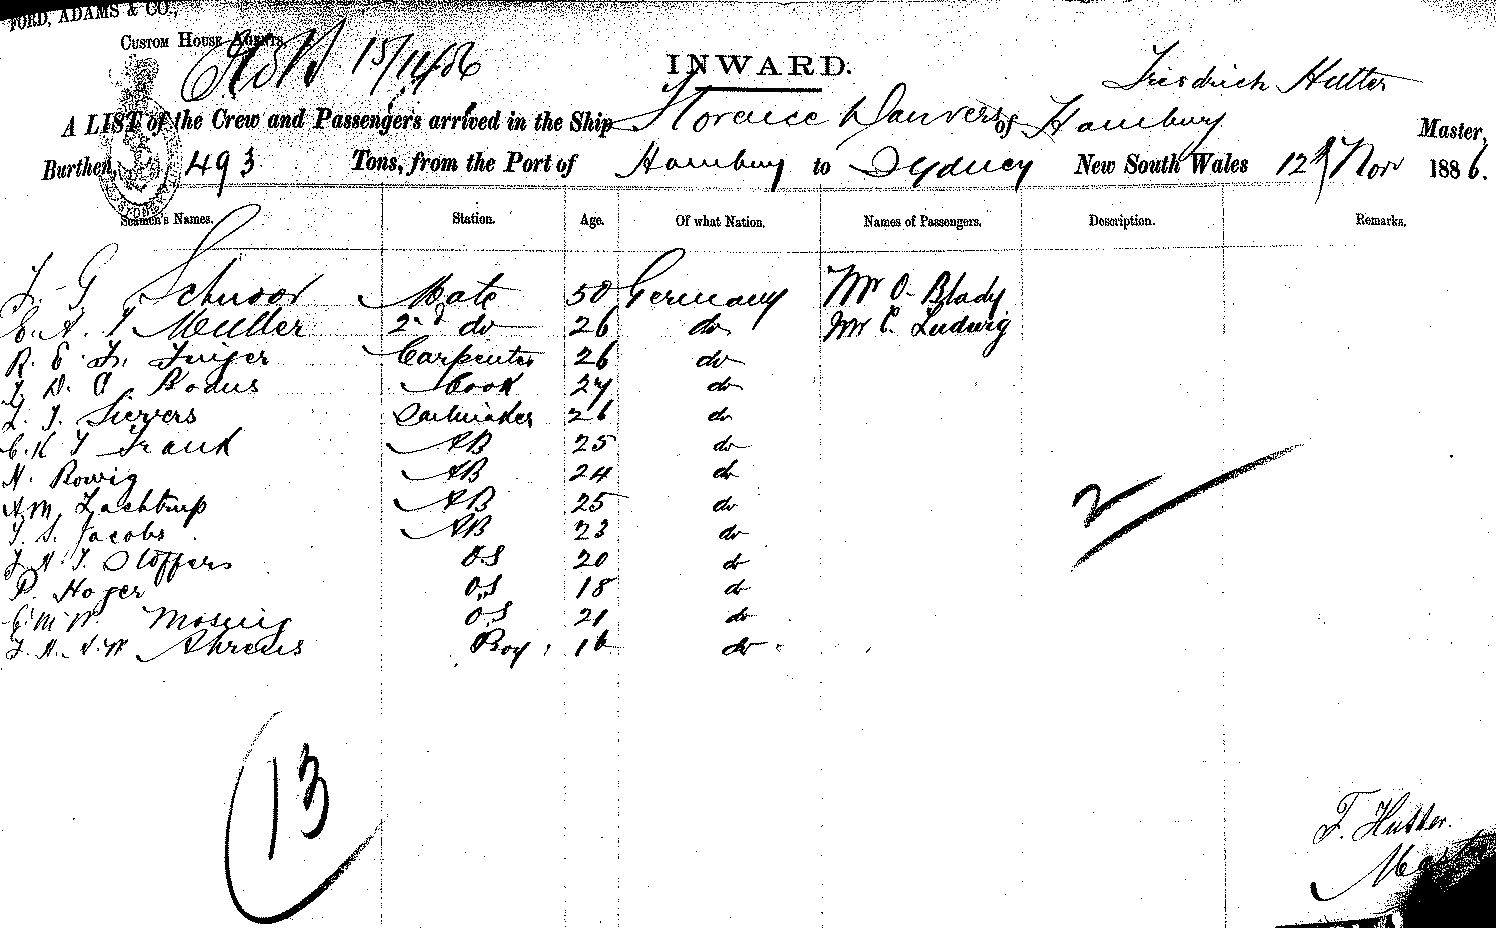 FORD, ADAMS & CO.,
CUSTOM HOUSE AGENTS.
15/11/86
INWARD.
Friedrich Hutter
A LIST of the Crew and Passengers arrived in the Ship Florence Danvers of Hamburg Master,
Burthen, 493 Tons, from the Port of Hamburg to Sydney New South Wales 12th Nov 1886.
Seamen's Names. Station. Age. Of what Nation. Names of Passengers. Description. Remarks.
J. G Schnoor Mate 50 Germany Mr O. Blady
C. A. T Muller 2nd do 26 do Mr C. Ludwig
R. E. Fr. Junger Carpenter 26 do
D. C. Bodus Cook 27 do
L. J. Sievers Sailmaker 26 do
C. H T Frank AB 25 do
N. Rowig AB 24 do
A. M. Lachtrup AB 25 do
J. S. Jacobs AB 23 do
J. H. J. Stoffers OS 20 do
P. Hoger OS 18 do
C. M. W. Mosuig OS 21 do
J. H. A. W Ahrens Boy 16 do
2
13
F. Hutter.